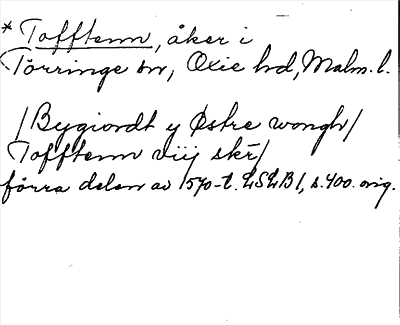 * Tofftenn, åker i
Törringe sn, Oxie hd, Malm. l.
/Bygiordt y Østre wongh/
Tofftenn viij skr/
förra delen av 1570-t. LSLB1, s. 400. orig.